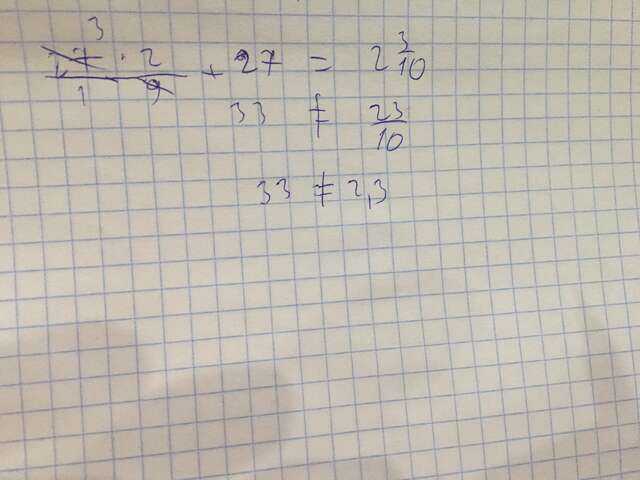 3
27 · 2 / 1 9 + 27 = 2 3/10
33 ≠ 23/10
33 ≠ 2,3